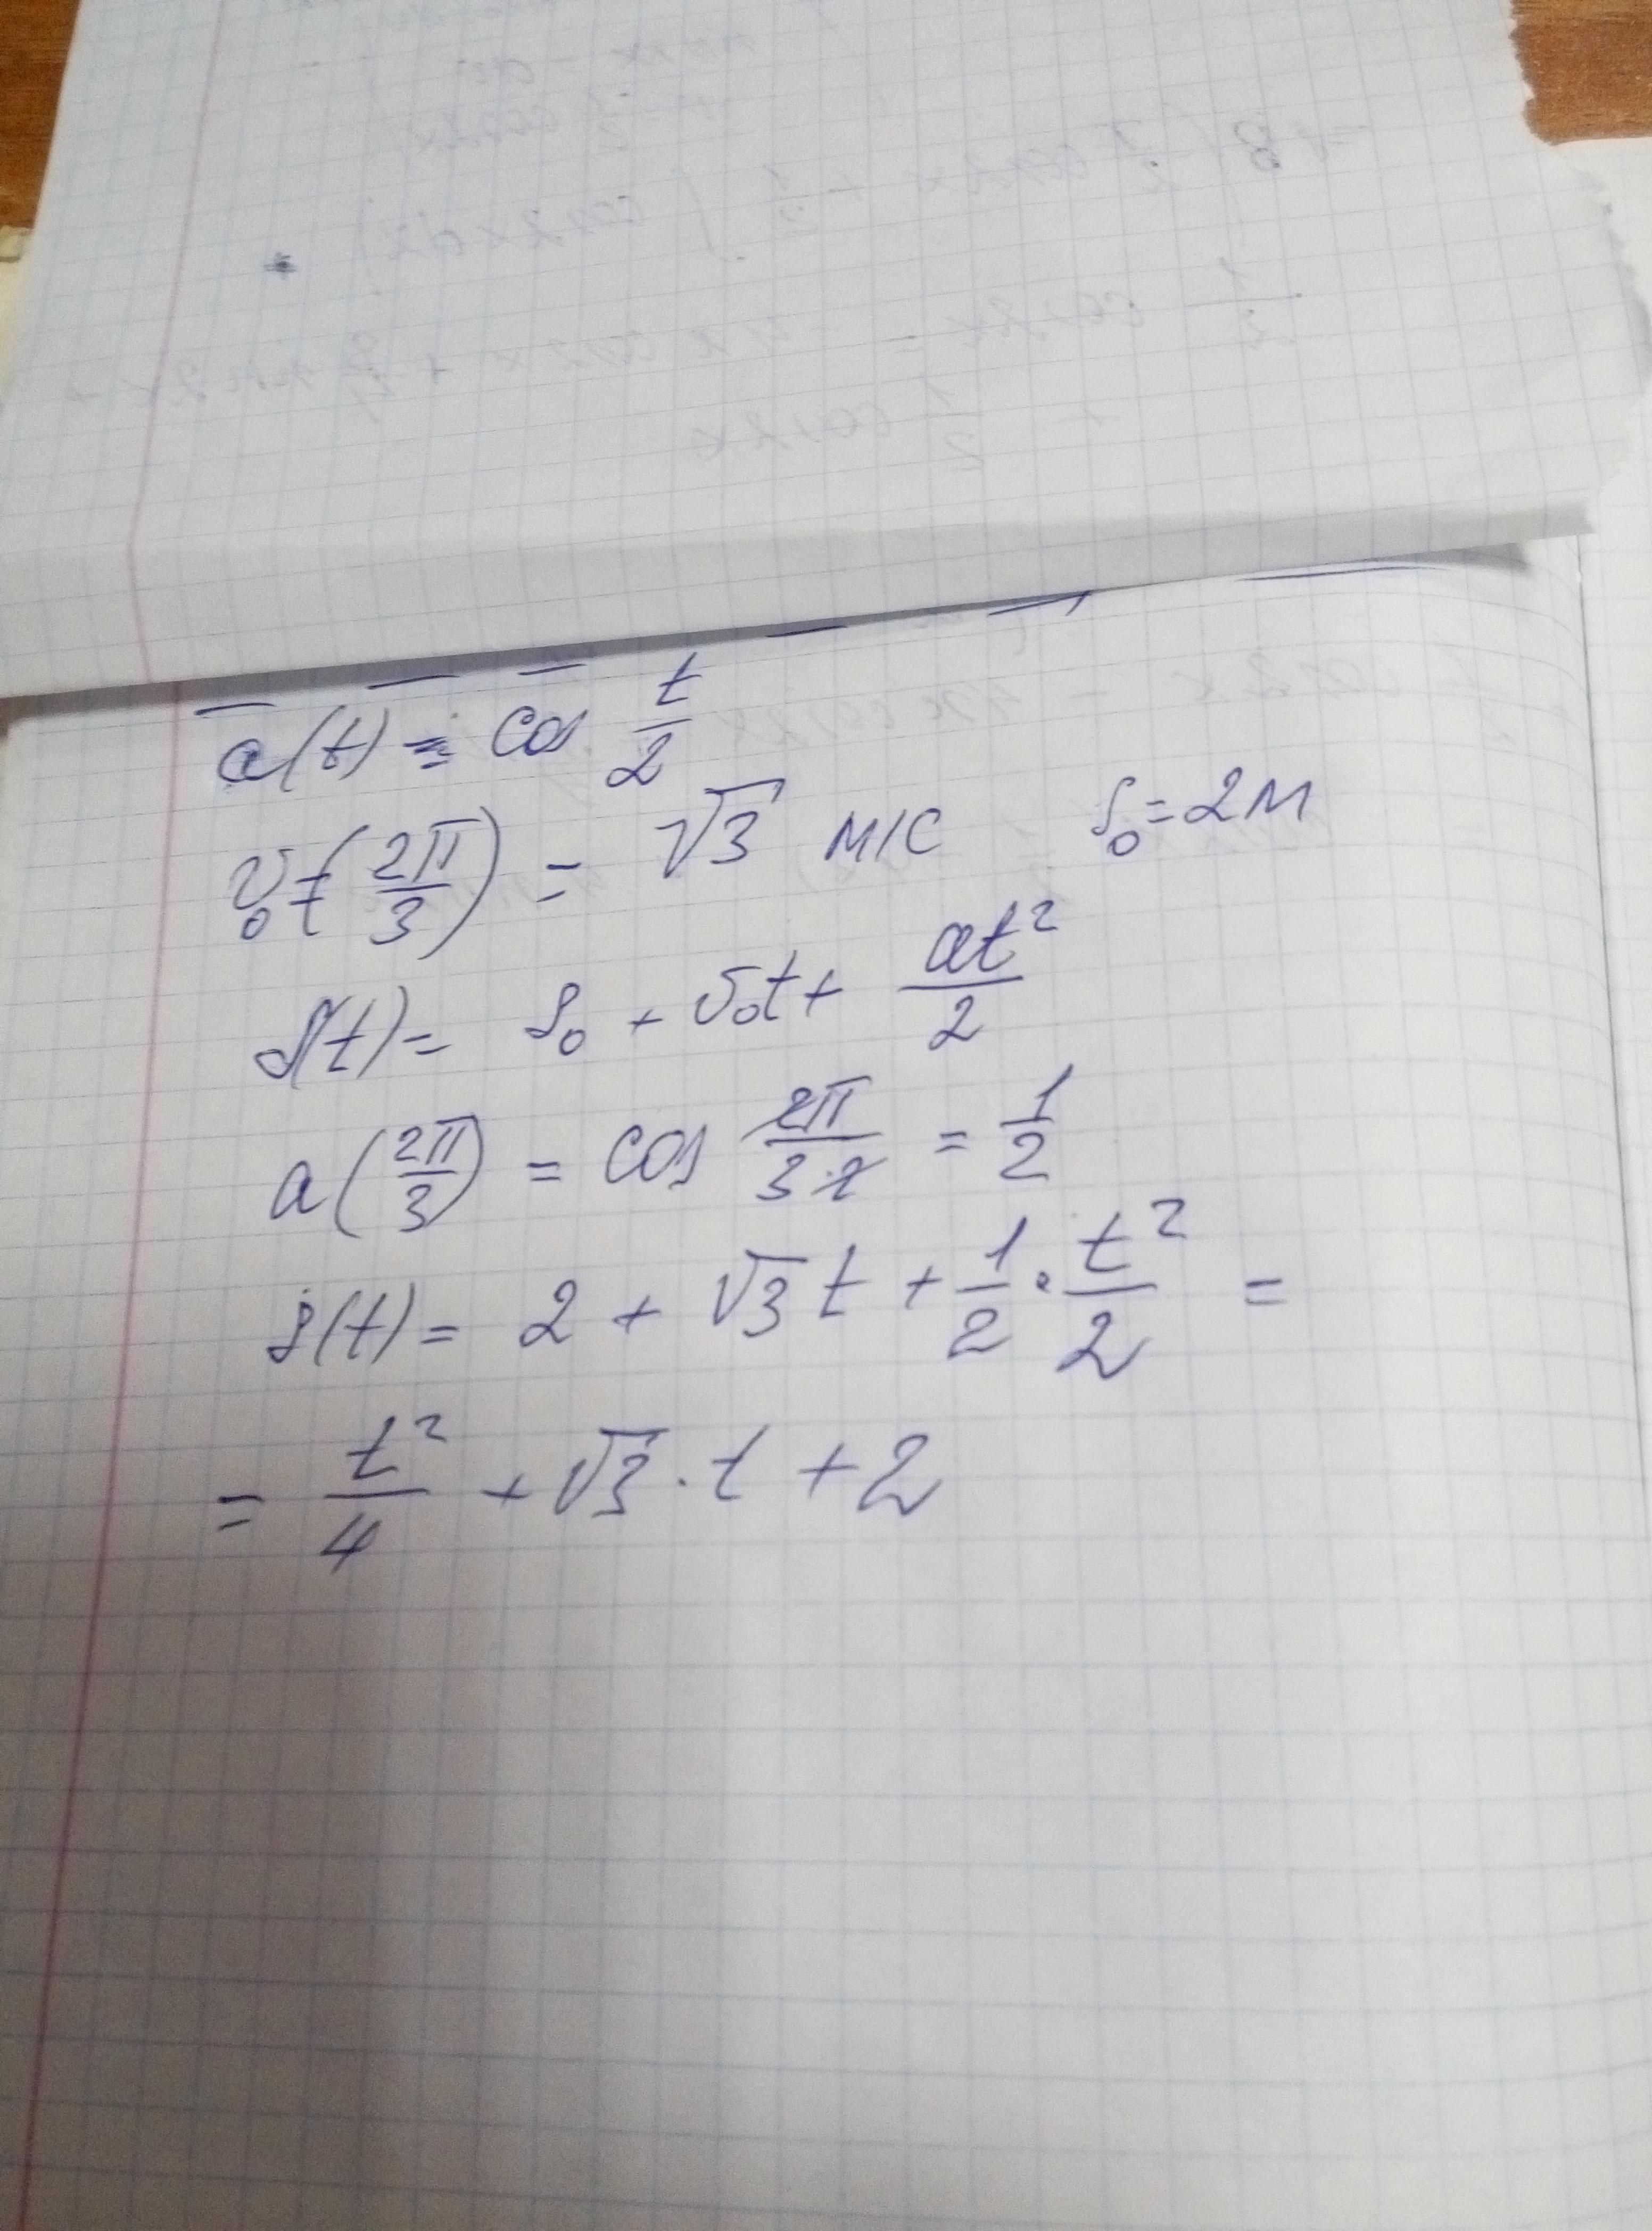 a(t) = cos t/2
v₀ = (2π/3) = √3 м/с S₀ = 2м
S(t) = S₀ + v₀t + at²/2
a(2π/3) = cos 2π/3·2 = 1/2
S(t) = 2 + √3 t + 1/2 · t²/2 =
= t²/4 + √3 · t + 2